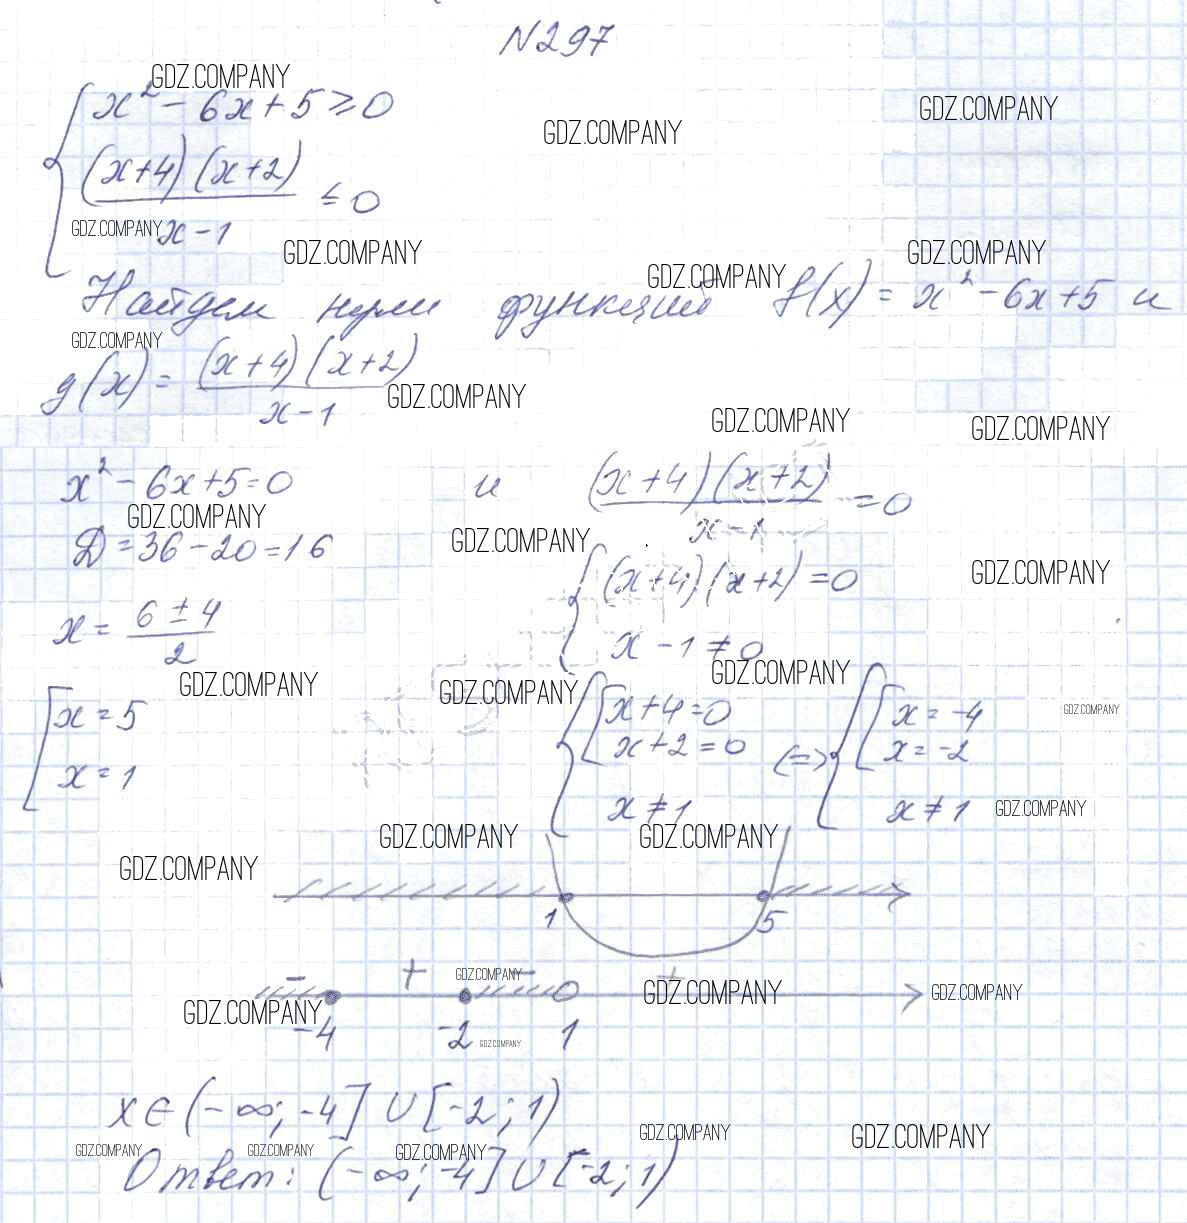 N297
GDZ.COMPANY
x² - 6x + 5 ≥ 0
GDZ.COMPANY
GDZ.COMPANY
(x+4)(x+2)
≤ 0
GDZ.COMPANY
x - 1
GDZ.COMPANY
GDZ.COMPANY
GDZ.COMPANY
Найдем нули функций f(x) = x² - 6x + 5 и
GDZ.COMPANY
g(x) = (x+4)(x+2)
x - 1
GDZ.COMPANY
GDZ.COMPANY
GDZ.COMPANY
x² - 6x + 5 = 0 и (x+4)(x+2) = 0
x - 1
GDZ.COMPANY
GDZ.COMPANY
D = 36 - 20 = 16
(x+4)(x+2) = 0
GDZ.COMPANY
x = 6 ± 4
2
x - 1 ≠ 0
GDZ.COMPANY
GDZ.COMPANY
GDZ.COMPANY
x = 5
x + 4 = 0
x = -4
GDZ.COMPANY
x = 1
x + 2 = 0 (=) x = -2
x ≠ 1
x ≠ 1
GDZ.COMPANY
GDZ.COMPANY
GDZ.COMPANY
GDZ.COMPANY
1 5
- + - +
GDZ.COMPANY
GDZ.COMPANY
GDZ.COMPANY
GDZ.COMPANY
-4 -2 1
GDZ.COMPANY
x ∈ (-∞; -4] ∪ [-2; 1)
GDZ.COMPANY
GDZ.COMPANY
GDZ.COMPANY
GDZ.COMPANY
GDZ.COMPANY
Ответ: (-∞; -4] ∪ [-2; 1)